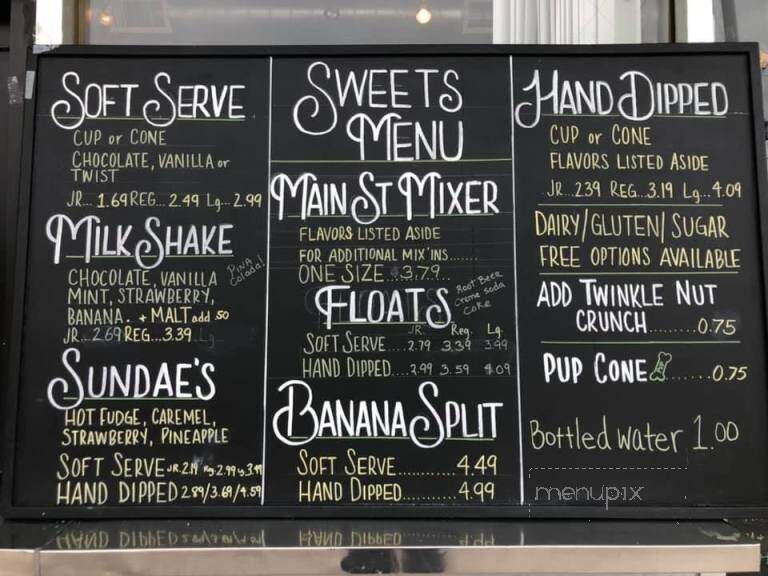 SOFT SERVE
CUP or CONE
CHOCOLATE, VANILLA or
TWIST
JR... 1.69 REG... 2.49 Lg... 2.99
MILK SHAKE
PINA
Colada!
CHOCOLATE, VANILLA
MINT, STRAWBERRY,
BANANA. + MALT add 50
JR...2.69 REG...3.39 Lg
SUNDAE'S
HOT FUDGE, CAREMEL,
STRAWBERRY, PINEAPPLE
SOFT SERVE JR. 2.19 Rg. 2.99
HAND DIPPED 2.89/3.69/4.59
SWEETS
MENU
MAIN ST MIXER
FLAVORS LISTED ASIDE
FOR ADDITIONAL MIX'INS.......
ONE SIZE 3.79...
FLOATS
Root Beer
Creme soda
Coke
JR. Reg. Lg.
SOFT SERVE....2.79 3.39 3.99
HAND DIPPED....2.99 3.59 4.09
BANANA SPLIT
SOFT SERVE..........4.49
HAND DIPPED..........4.99
HAND DIPPED
CUP or CONE
FLAVORS LISTED ASIDE
JR...2.39 REG...3.19 Lg...4.09
DAIRY/GLUTEN/SUGAR
FREE OPTIONS AVAILABLE
ADD TWINKLE NUT
CRUNCH.........0.75
PUP CONE.......0.75
Bottled water 1.00
menupix